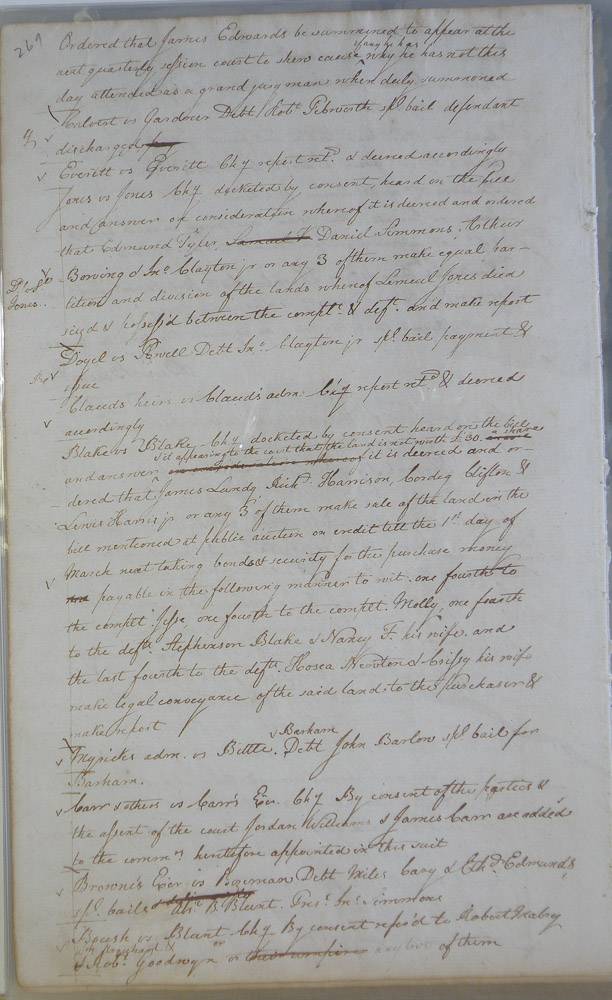 269
Ordered that James Edwards be summoned to appear at the
next quarterly session court to shew cause if any he has why he has not this
day attended as a grand jury man when duly summoned
Halvest vs Gardner Debt / Robt. Pebworth spl. bail defendant
discharged
Everitt vs Everitt Chy report retd. & decreed accordingly
Jones vs Jones Chy docketed by consent, heard on the bill
and answer on consideration whereof it is decreed and ordered
that Edmund Tyler, Samuel Daniel Simmons, Arthur
Jones.
Bowing & Jno. Clayton jr or any 3 of them make equal par-
tition and division of the lands whereof Lemuel Jones died
siezd & possess'd between the complt. & deft. and make report
Doyel vs Powell Debt Jno. Clayton jr spl. bail payment &
issue
Clauds heirs vs Clauds adm. Chy report retd. & decreed
accordingly
Blake vs Blake Chy docketed by consent heard on the bill
and answer & it appearing to the court that the land is not worth £30. a share it is decreed and or-
dered that James Lundy Richd. Harrison, Cordeg Clifton &
Lewis Harris jr or any 3 of them make sale of the land in the
bill mentioned at public auction on credit till the 1st day of
March next taking bonds & security for the purchase money
payable in the following manner to wit. one fourth to
the complt. Jesse, one fourth to the complt. Molly, one fourth
to the defts. Stepherson Blake & Nancy F. his wife, and
the last fourth to the defts. Hosea Newton & Crissy his wife
make legal conveyance of the said land to the purchaser &
make report
Barham
Myrick's adm. vs Bittle. Debt John Barlow spl bail for
Barham.
Carr & others vs Carr's Exr. Chy By consent of the parties &
the assent of the court Jordan Williams & James Carr are added
to the commrs. heretofore appointed in this suit
Brown's Exor vs Bowman Debt Miles Cary & Ethd. Edmunds
spl. bails Abs. B. Blunt. Prest. Jno. Simmons
Boush vs Blunt Chy By consent refer'd to Robert Mabry
& Robt. Goodwyn or their umpire any two of them